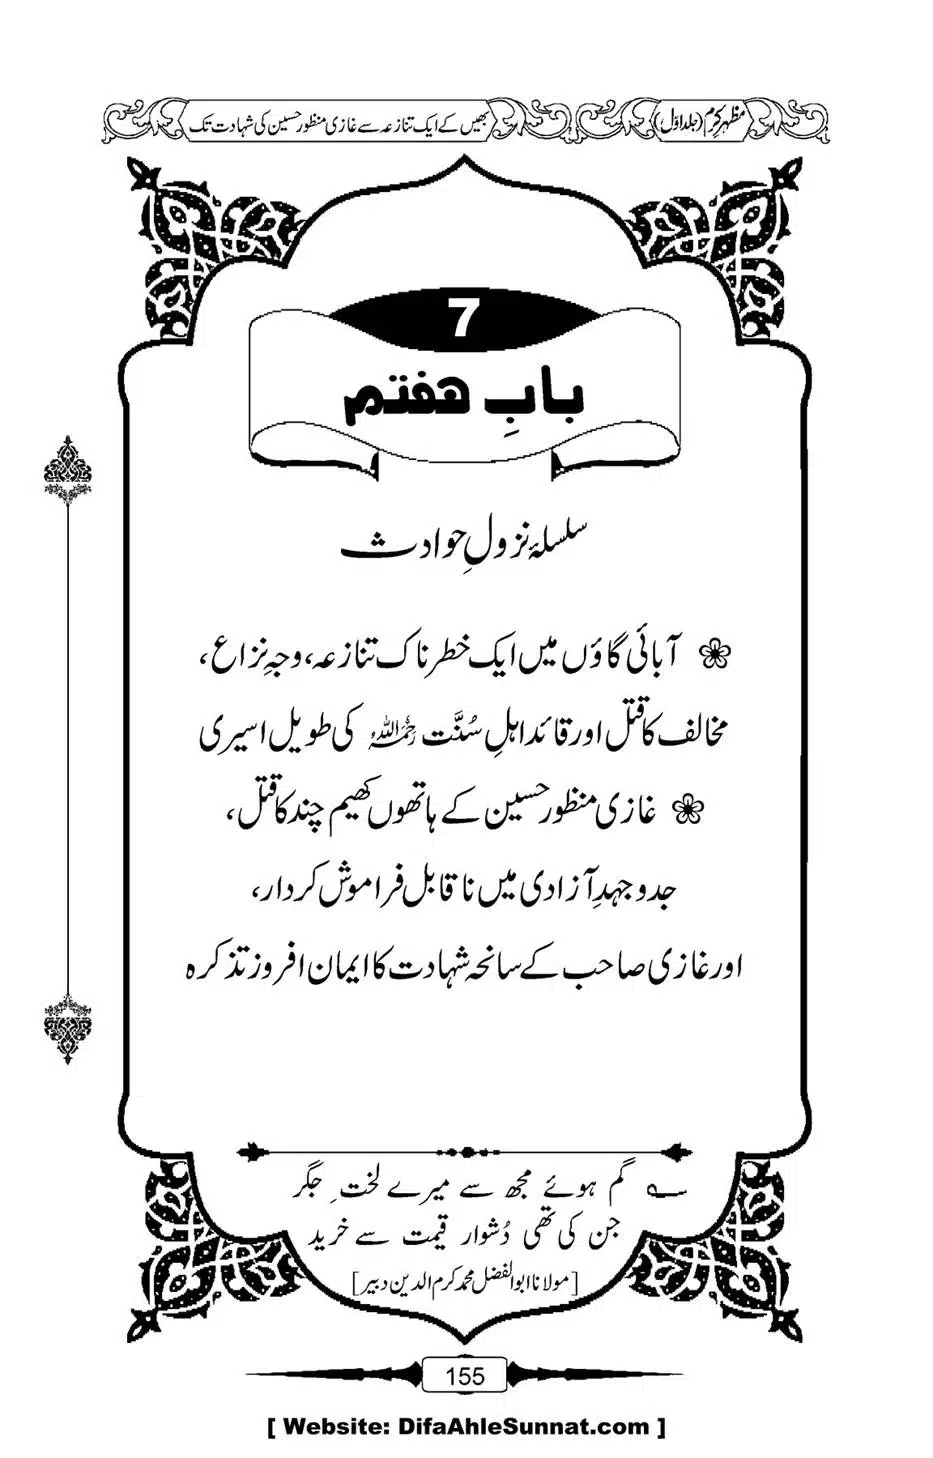 مظہرِ کرم (جلد اوّل) بھیں کے ایک تنازعہ سے غازی منظور حسین کی شہادت تک
7
بابِ هفتم
سلسلۂ نزولِ حوادث
آبائی گاؤں میں ایک خطرناک تنازعہ، وجہِ نزاع،
مخالف کا قتل اور قائد اہلِ سُنَّت رحمہ اللہ کی طویل اسیری
غازی منظور حسین کے ہاتھوں کھیم چند کا قتل،
جدوجہدِ آزادی میں ناقابل فراموش کردار،
اور غازی صاحب کے سانحہ شہادت کا ایمان افروز تذکرہ
؎ گم ہوئے مجھ سے میرے لخت ِ جگر
جن کی تھی دُشوار قیمت سے خرید
[مولانا ابوالفضل محمد کرم الدین دبیر]
155
[ Website: DifaAhleSunnat.com ]